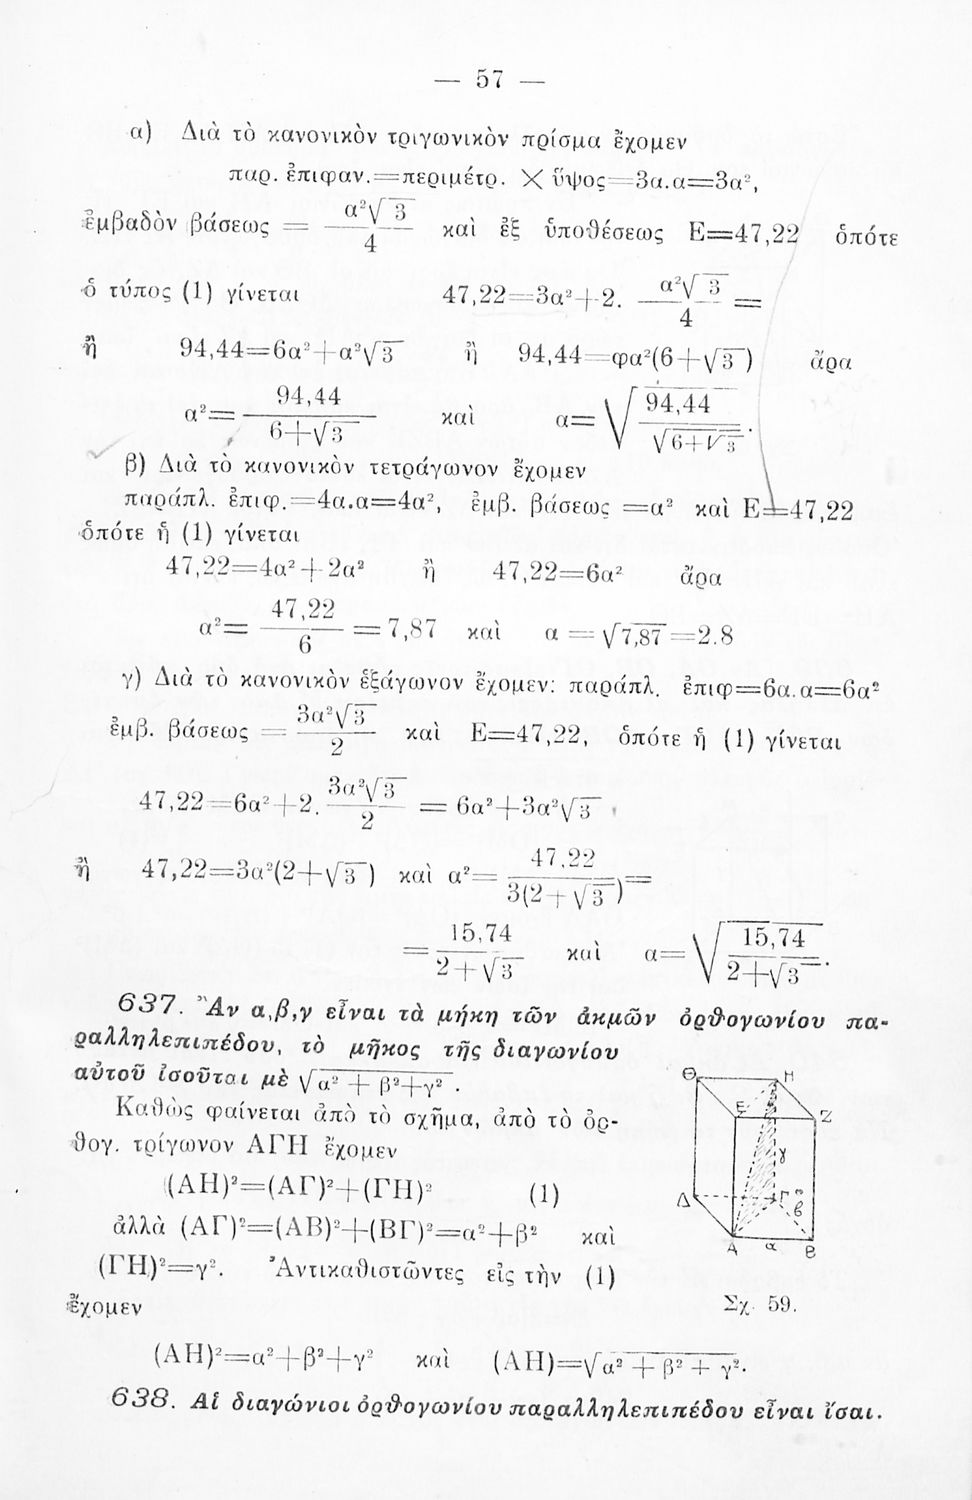 — 57 —
α) Διὰ τὸ κανονικὸν τριγωνικὸν πρίσμα ἔχομεν
παρ. ἐπιφαν.=περιμέτρ. ✕ ὕψος=3α.α=3α²,
ἐμβαδὸν βάσεως = α²√3/4 καὶ ἐξ ὑποθέσεως Ε=47,22 ὁπότε
ὁ τύπος (1) γίνεται 47,22=3α²+2. α²√3/4 =
ἢ 94,44=6α²+α²√3 ἢ 94,44=φα²(6+√3) ἄρα
α²= 94,44/6+√3 καὶ α= √94,44/√6+√3.
β) Διὰ τὸ κανονικὸν τετράγωνον ἔχομεν
παράπλ. ἐπιφ.=4α.α=4α², ἐμβ. βάσεως =α² καὶ Ε=47,22
ὁπότε ἡ (1) γίνεται
47,22=4α²+2α² ἢ 47,22=6α² ἄρα
α²= 47,22/6 =7,87 καὶ α = √7,87=2.8
γ) Διὰ τὸ κανονικὸν ἑξάγωνον ἔχομεν: παράπλ. ἐπιφ=6α.α=6α²
ἐμβ. βάσεως = 3α²√3/2 καὶ Ε=47,22, ὁπότε ἡ (1) γίνεται
47,22=6α²+2. 3α²√3/2 = 6α²+3α²√3
ἢ 47,22=3α²(2+√3) καὶ α²= 47,22/3(2+√3)=
= 15,74/2+√3 καὶ α= √15,74/2+√3.
637. Ἂν α,β,γ εἶναι τὰ μήκη τῶν ἀκμῶν ὀρθογωνίου πα-
ραλληλεπιπέδου, τὸ μῆκος τῆς διαγωνίου
αὐτοῦ ἰσοῦται μὲ √α² + β²+γ².
Καθὼς φαίνεται ἀπὸ τὸ σχῆμα, ἀπὸ τὸ ὀρ-
θογ. τρίγωνον ΑΓΗ ἔχομεν
(ΑΗ)²=(ΑΓ)²+(ΓΗ)² (1)
ἀλλὰ (ΑΓ)²=(ΑΒ)²+(ΒΓ)²=α²+β² καὶ
(ΓΗ)²=γ². Ἀντικαθιστῶντες εἰς τὴν (1)
ἔχομεν
Θ Η
Ε Ζ
γ
Δ Γ
β
Α α Β
Σχ. 59.
(ΑΗ)²=α²+β²+γ² καὶ (ΑΗ)=√α² + β² + γ².
638. Αἱ διαγώνιοι ὀρθογωνίου παραλληλεπιπέδου εἶναι ἴσαι.